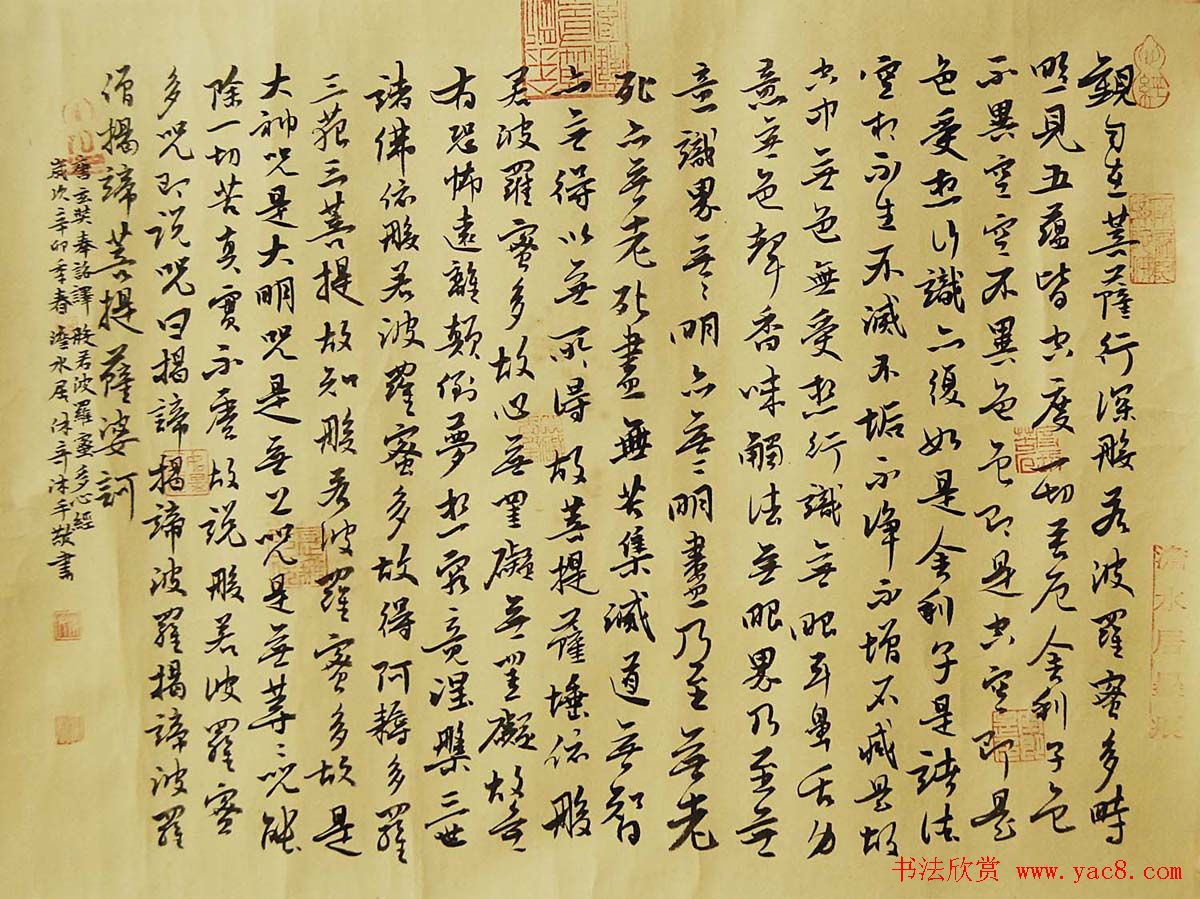 心經
觀自在菩薩行深般若波羅蜜多時
照見五蘊皆空度一切苦厄舍利子色
不異空空不異色色即是空空即是
色受想行識亦復如是舍利子是諸法
空相不生不滅不垢不淨不增不減是故
空中無色無受想行識無眼耳鼻舌身
意無色聲香味觸法無眼界乃至無
意識界無〻明亦無〻明盡乃至無老
死亦無老死盡無苦集滅道無智
亦無得以無所得故菩提薩埵依般
若波羅蜜多故心無罣礙無罣礙故無
有恐怖遠離顛倒夢想究竟涅槃三世
諸佛依般若波羅蜜多故得阿耨多羅
三藐三菩提故知般若波羅蜜多故是
大神咒是大明咒是無上咒是無等〻咒能
除一切苦真實不虛故說般若波羅蜜
多咒即說咒曰揭諦揭諦波羅揭諦波羅
僧揭諦菩提薩婆訶
唐玄奘奉詔譯般若波羅蜜多心經
歲次辛卯季春澹水居休辛沐手敬書
澹水居墨痕
书法欣赏 www.yac8.com